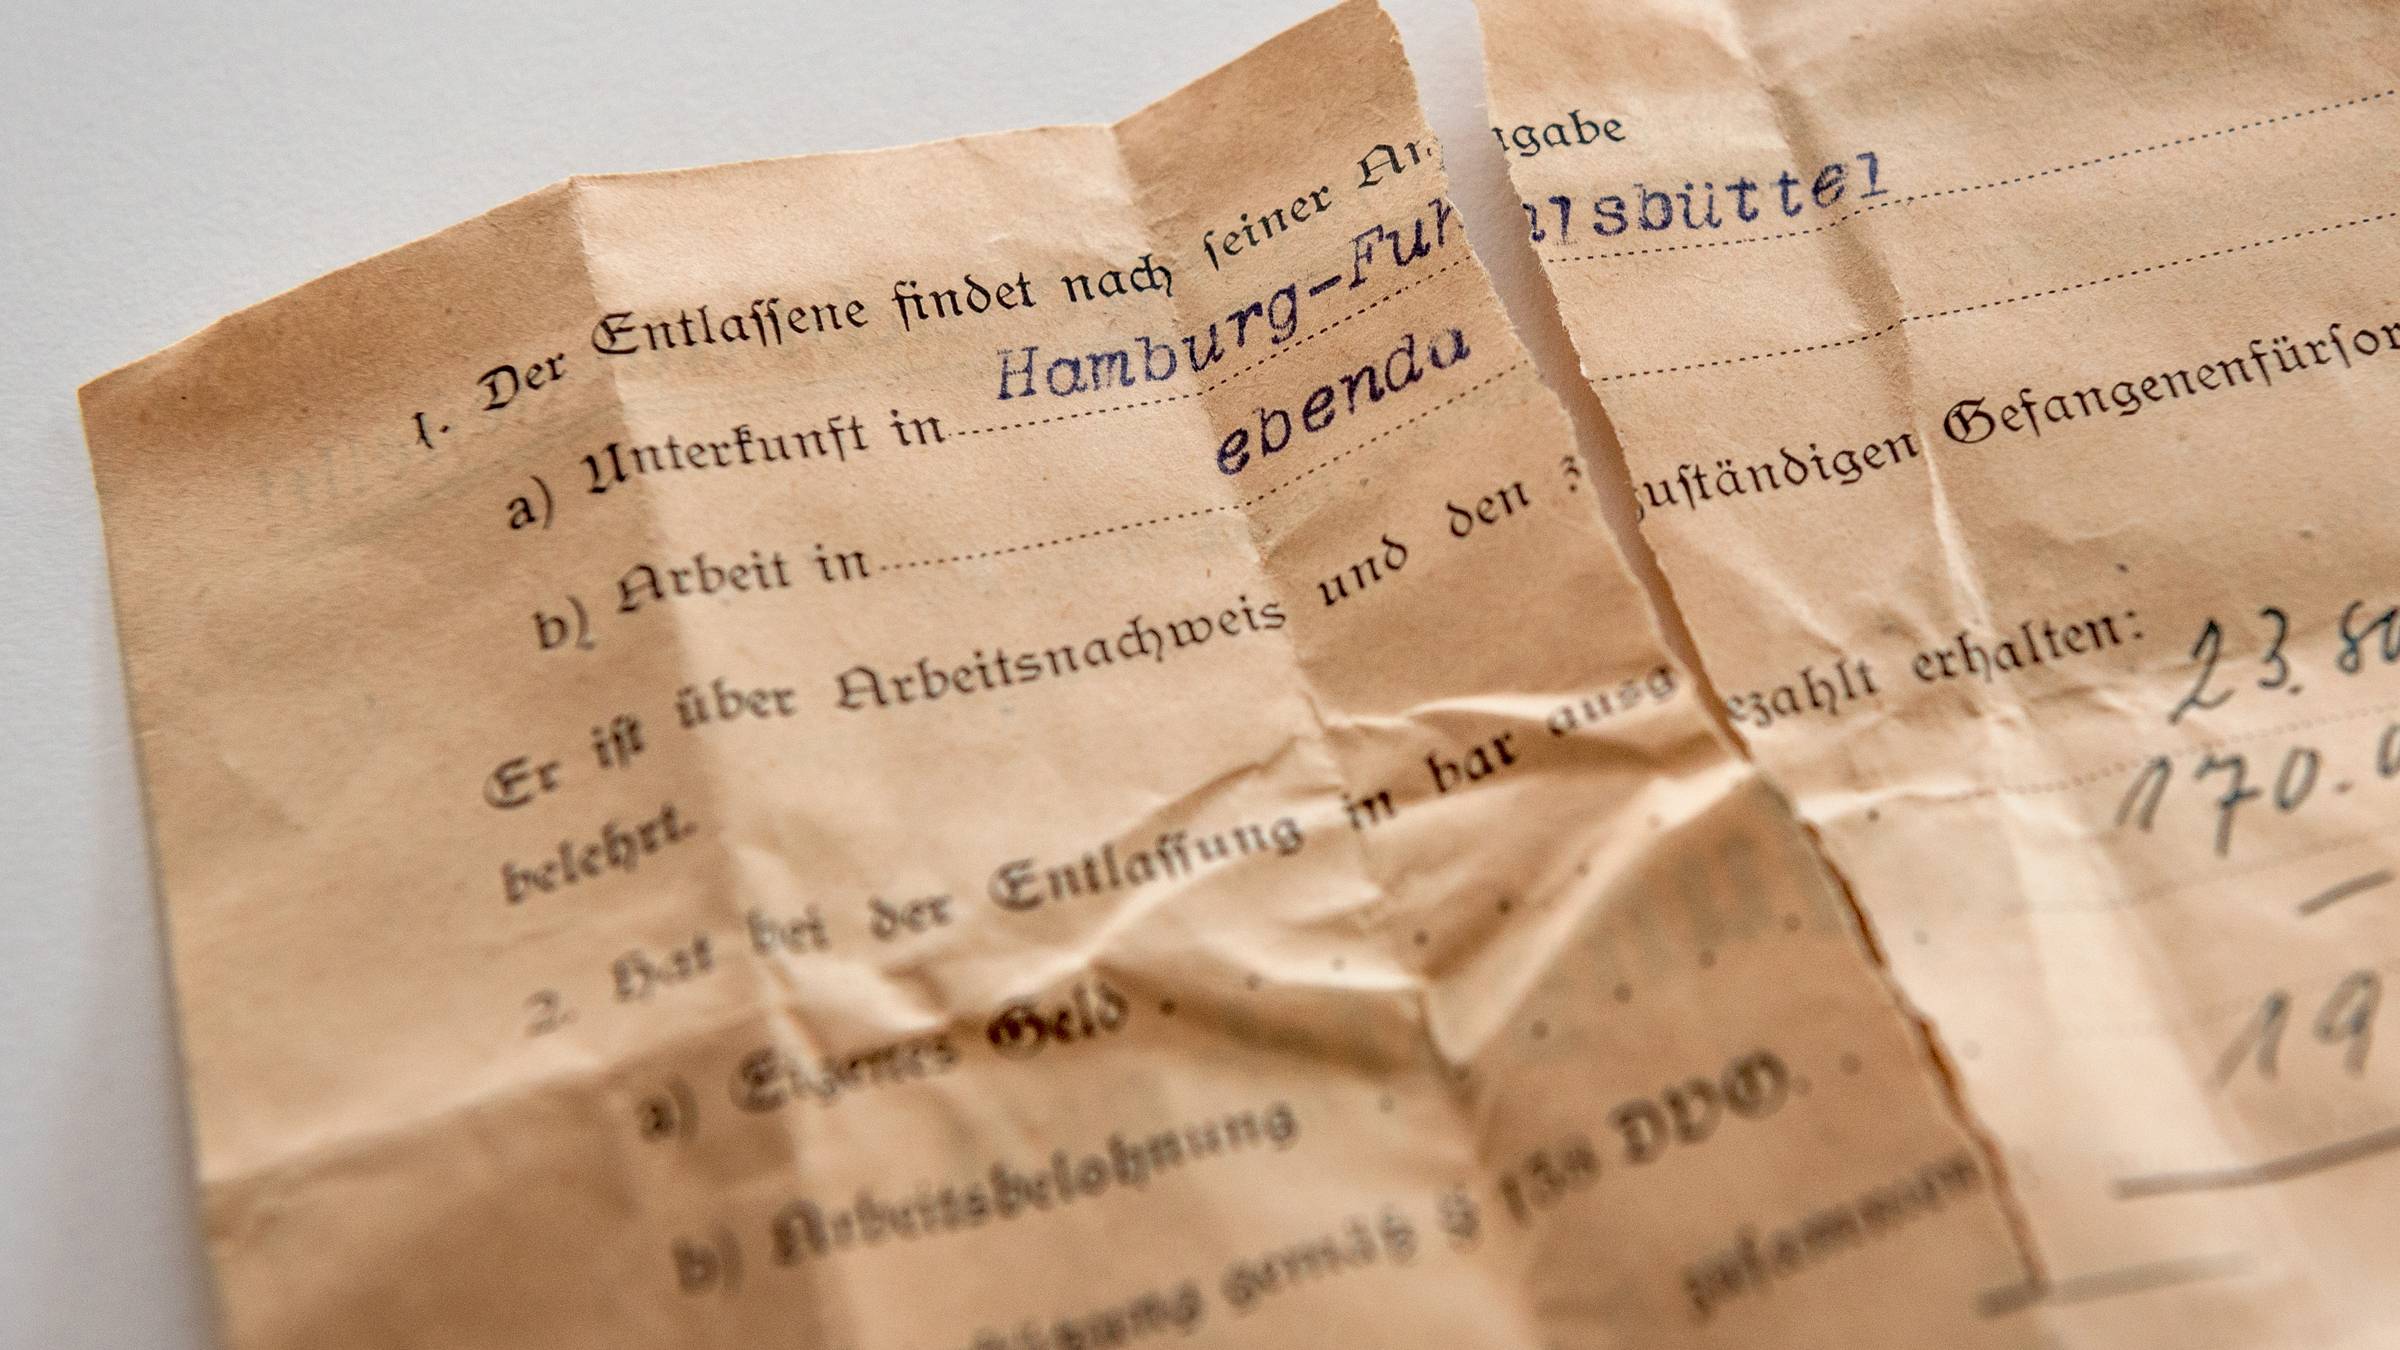 1. Der Entlassene findet nach seiner Angabe
a) Unterkunft in Hamburg-Fuhlsbüttel
b) Arbeit in ebenda
Er ist über Arbeitsnachweis und den zuständigen Gefangenenfürsor
belehrt.
2. Hat bei der Entlassung in bar ausgezahlt erhalten:
a) Eigenes Geld 23.80
b) Arbeitsbelohnung 170.0
gemäß § 13a DVO. —
zusammen 19